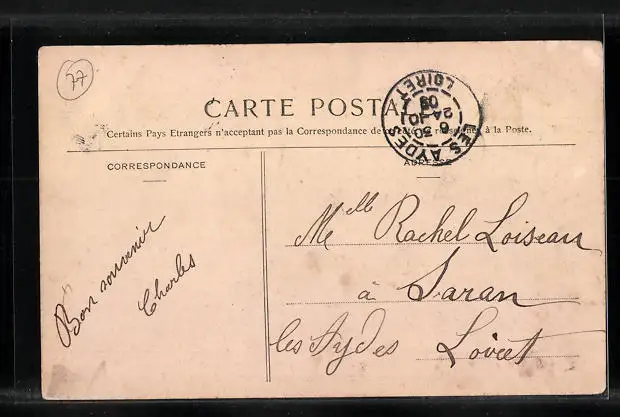 77
CARTE POSTA
Certains Pays Etrangers n'acceptant pas la Correspondance de à la Poste.
LES AYDES
6 30
24 -10
09
LOIRET
CORRESPONDANCE
ADRESSE
Bon souvenir
Charles
Melle Rachel Loiseau
à Saran
les Aydes Loiret